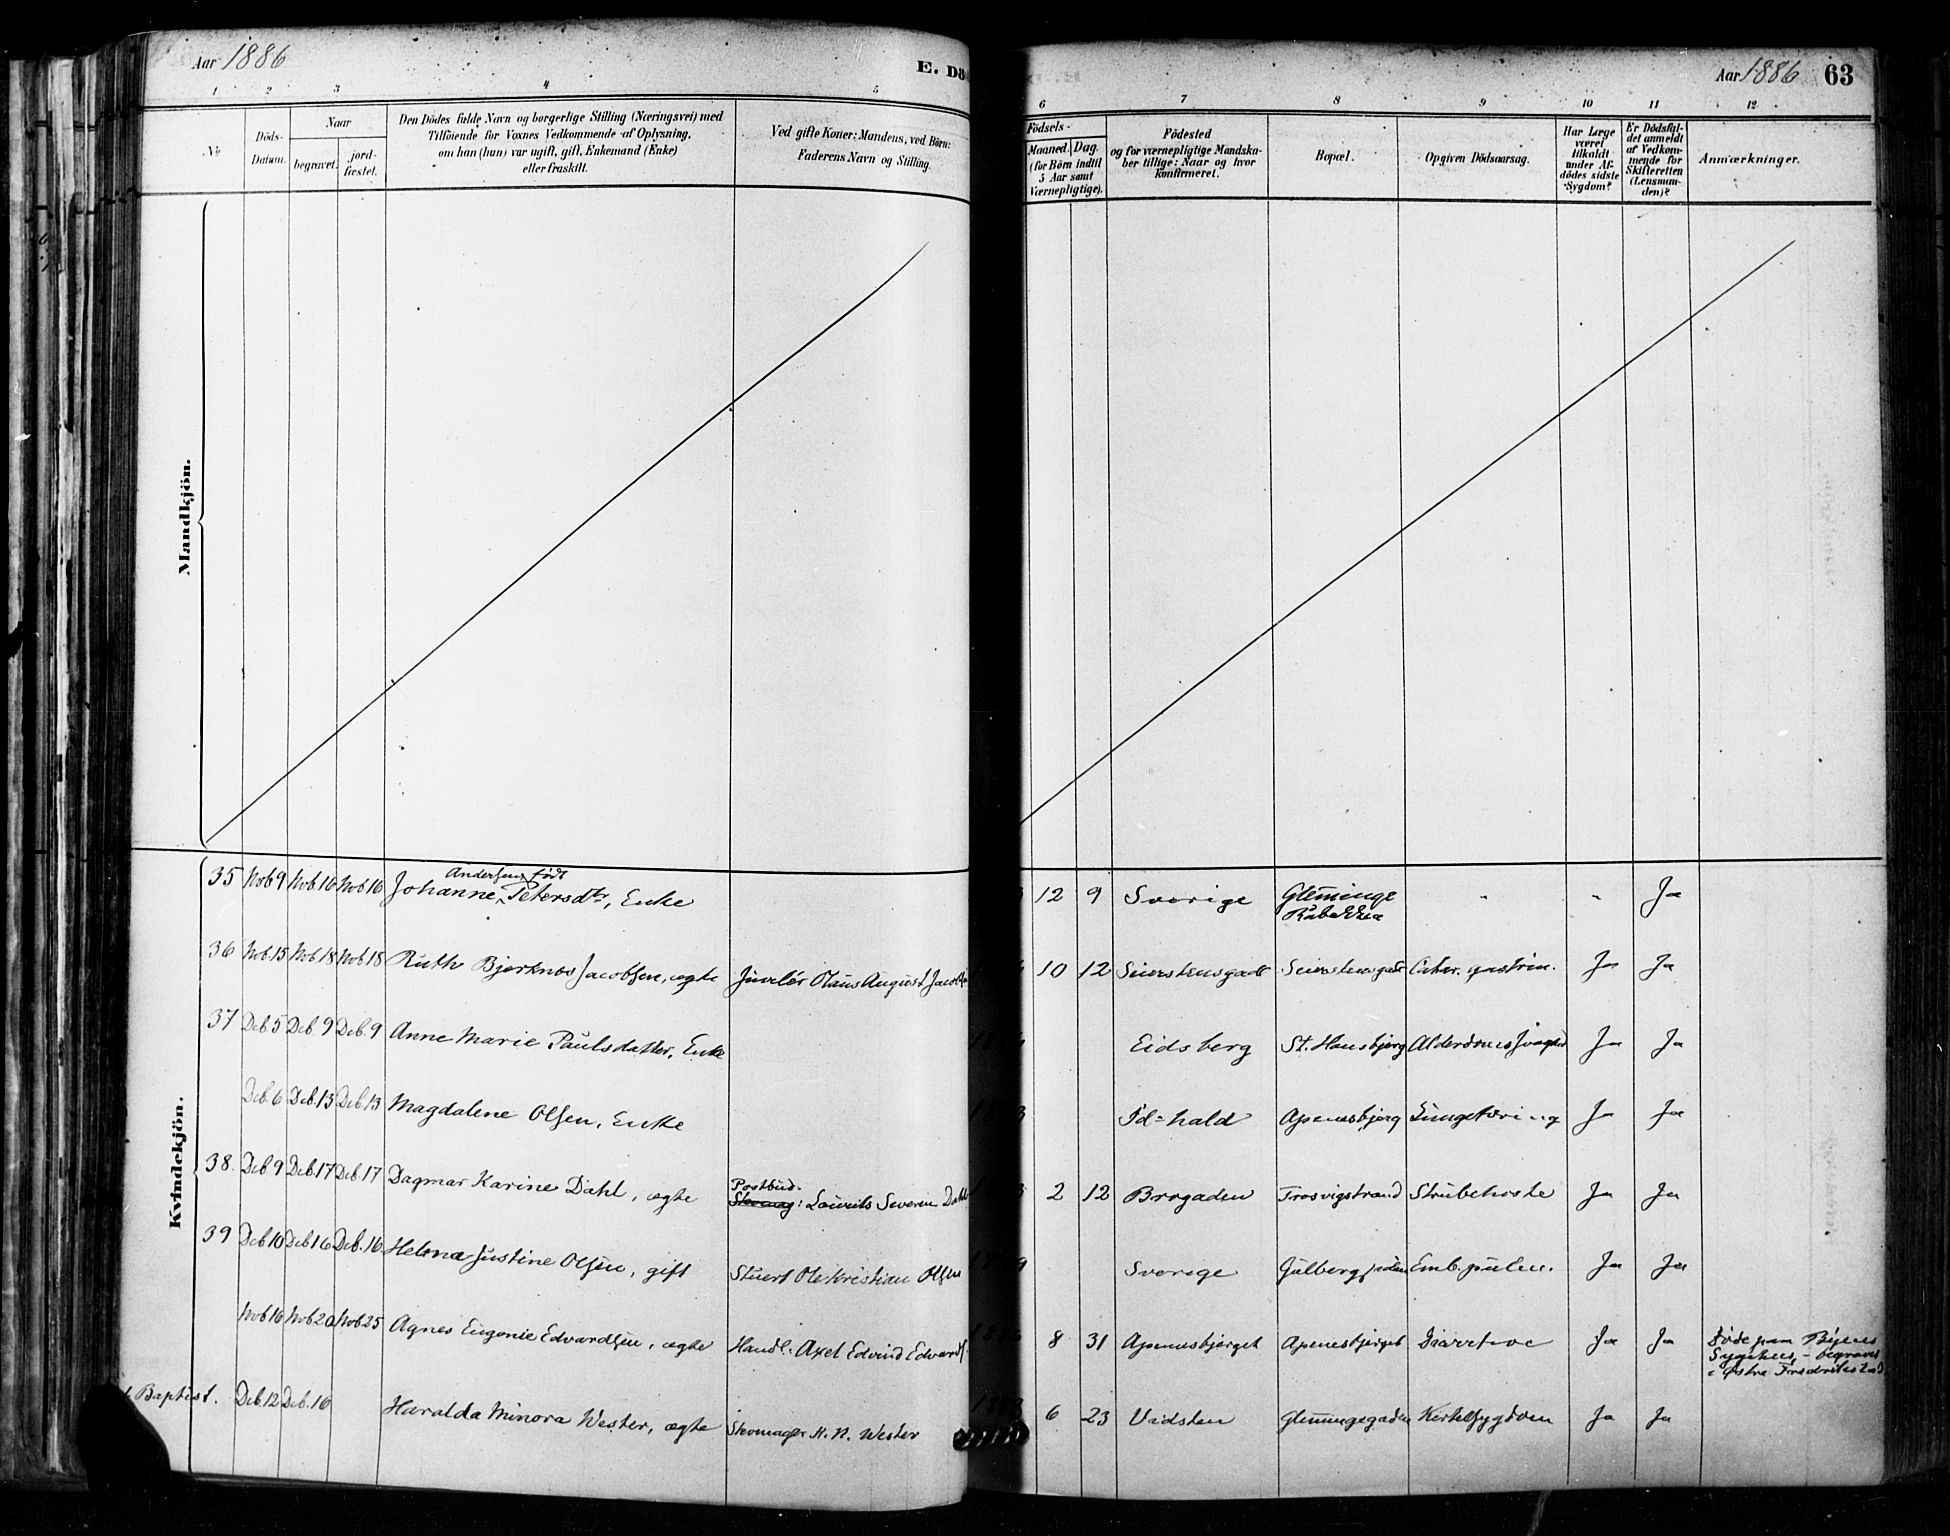 Aar 1886
E. Dö
Aar 1886 63
1 2 3 4 5 6 7 8 9 10 11 12
No
Döds-
Datum.
Naar
begravet.
jord-
fæstet.
Den Dödes fulde Navn og borgerlige Stilling (Næringsvei) med
Tilföiende for Voxnes Vedkommende af Oplysning,
om han (hun) var ugift, gift, Enkemand (Enke)
eller fraskilt.
Ved gifte Koner: Mandens, ved Börn:
Faderens Navn og Stilling.
Födsels-
Maaned. Dag.
(for Börn indtil
5 Aar samt
Værnepligtige).
Födested
og for værnepligtige Mandska-
ber tillige: Naar og hvor
konfirmeret.
Bopæl.
Opgiven Dödsaarsag.
Har Læge
været
tilkaldt
under Af-
dödes sidste
Sygdom?
Er Dödsfal-
det anmeldt
af Vedkom-
mende for
Skifteretten
(Lensman-
den)?
Anmærkninger.
Mandkjön.
Kvindekjön.
Andersen, født
35 Nob 9 Nob. 16 Nob 16 Johanne Petersdtr, Enke 12 9 Sverige Gleminge " " Ja
36 Nob. 15 Nob 18 Nob 18 Ruth Bjerknes Jacobsen, ægte Juvelér Olaus August 10 12 Seierstensgadt Seierstensgadt Catar. gastrin. Ja Ja
37 Deb. 5 Deb 9 Deb. 9 Anne Marie Paulsdatter, Enke Eidsberg St. Hansbjerg Ja Ja
Deb. 6 Deb. 13 Deb. 13 Magdalene Olsen, Enke Id=hald Apenesbjerg Lungetæring Ja Ja
38. Deb 9 Deb. 17 Deb. 17 Dagmar Karine Dahl, ægte Postbud. Lourits Severin Dahl 2 12 Brogaden Trosvigstrand Strubehoste Ja Ja
39 Deb 10 Deb 16 Deb. 16 Helena Justine Olsen, gift Stuert Ole Kristian Olsen Sverige Emb. pulm. Ja Ja
Nob 16 Nob 20 Nob 25 Agnes Eugenie Edvardsen, ægte Handl. Axel Edvind Edvards 8 31 Apenesbjerget Apenesbjerget Diarrhoe Ja Ja Døde paa Byens
Sygehus, - begravet
i Østre Fredrikstad
Baptist. Deb. 12 Deb. 16 Haralda Minora Wester, ægte Skomager H. N. Wester 6 23 Vadsten Glemmingegaden Kirtelsygdom Ja Ja